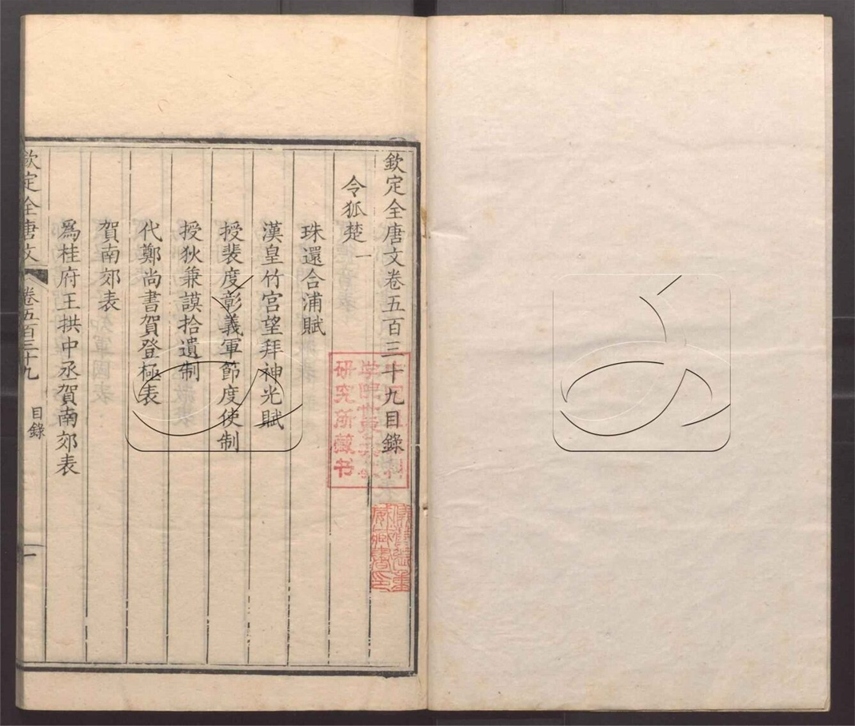 欽定全唐文卷五百三十九目錄
令狐楚一
珠還合浦賦
漢皇竹宮望拜神光賦
授裴度彰義軍節度使制
授狄兼謨拾遺制
代鄭尚書賀登極表
賀南郊表
為桂府王拱中丞賀南郊表
欽定全唐文
卷五百三十九
目錄
一
研究所藏书